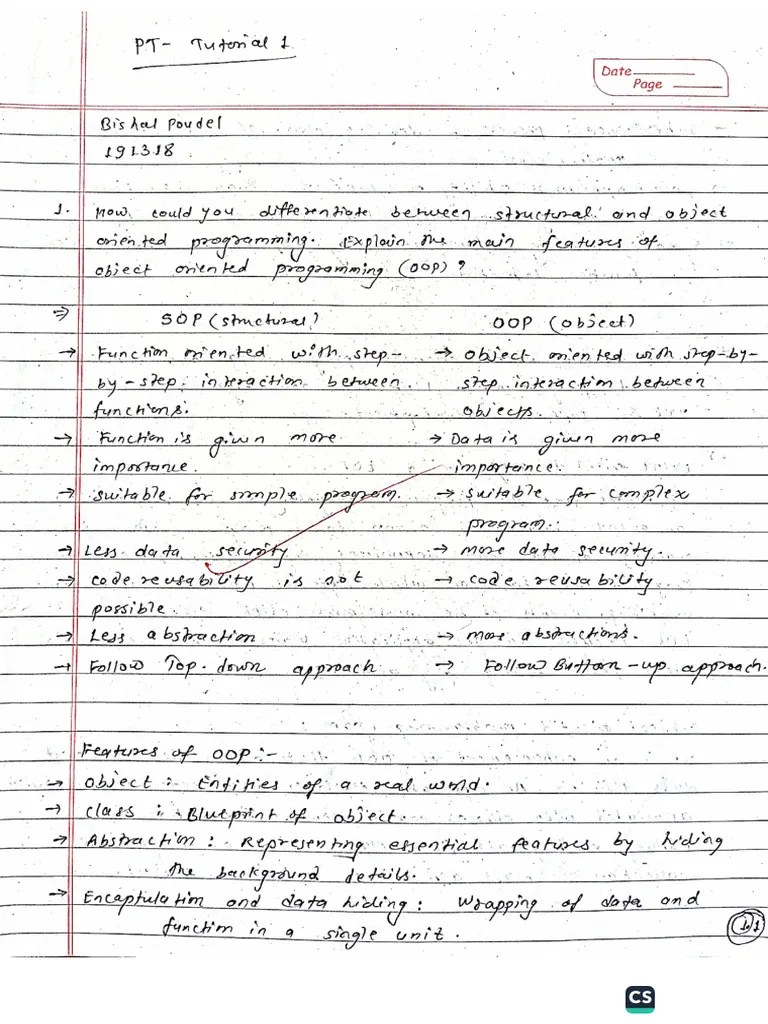 PT- Tutorial 1
Date
Page
Bishal Poudel
191318
1. How could you differentiate between structural and object
oriented programming. Explain the main features of
object oriented programming (OOP) ?
=> SOP (structural) OOP (object)
→ Function oriented with step- → object oriented with step-by-
by-step interaction between step interaction between
functions. objects.
→ Function is given more → Data is given more
importance. importance.
→ suitable for simple program. → suitable for complex
program.
→ Less data security → more data security.
→ code reusability is not → code reusability
possible.
→ Less abstraction → more abstractions.
→ Follow Top-down approach → Follow Buttom-up approach.
Features of OOP :-
→ Object : Entities of a real world.
→ Class : Blueprint of object.
→ Abstraction : Representing essential features by hiding
the background details.
→ Encaptulation and data hiding : Wrapping of data and
function in a single unit.
1.1
CS